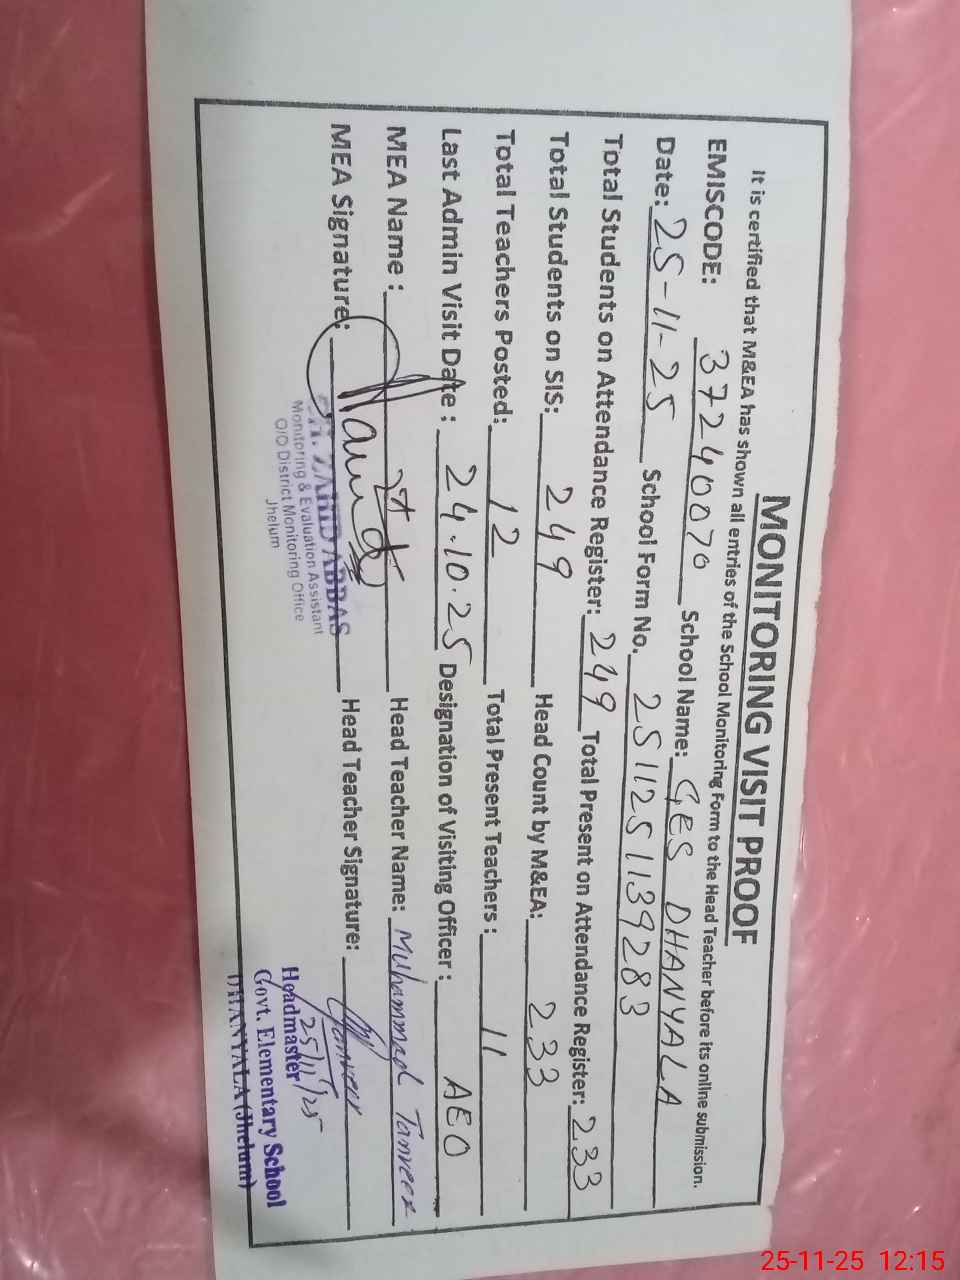 MONITORING VISIT PROOF
It is certified that M&EA has shown all entries of the School Monitoring Form to the Head Teacher before its online submission.
EMISCODE: 37240070 School Name: GES DHANYALA
Date: 25-11-25 School Form No. 2511251139283
Total Students on Attendance Register: 249 Total Present on Attendance Register: 233
Total Students on SIS: 249 Head Count by M&EA: 233
Total Teachers Posted: 12 Total Present Teachers : 11
Last Admin Visit Date : 24.10.25 Designation of Visiting Officer : AEO
MEA Name : Head Teacher Name: Muhammad Tanveer
MEA Signature: Head Teacher Signature: Tanveer
ABBAS
Monitoring & Evaluation Assistant
O/O District Monitoring Office
Jhelum
Headmaster 25/11/25
Govt. Elementary School
DHANYALA (Jhelum)
25-11-25 12:15